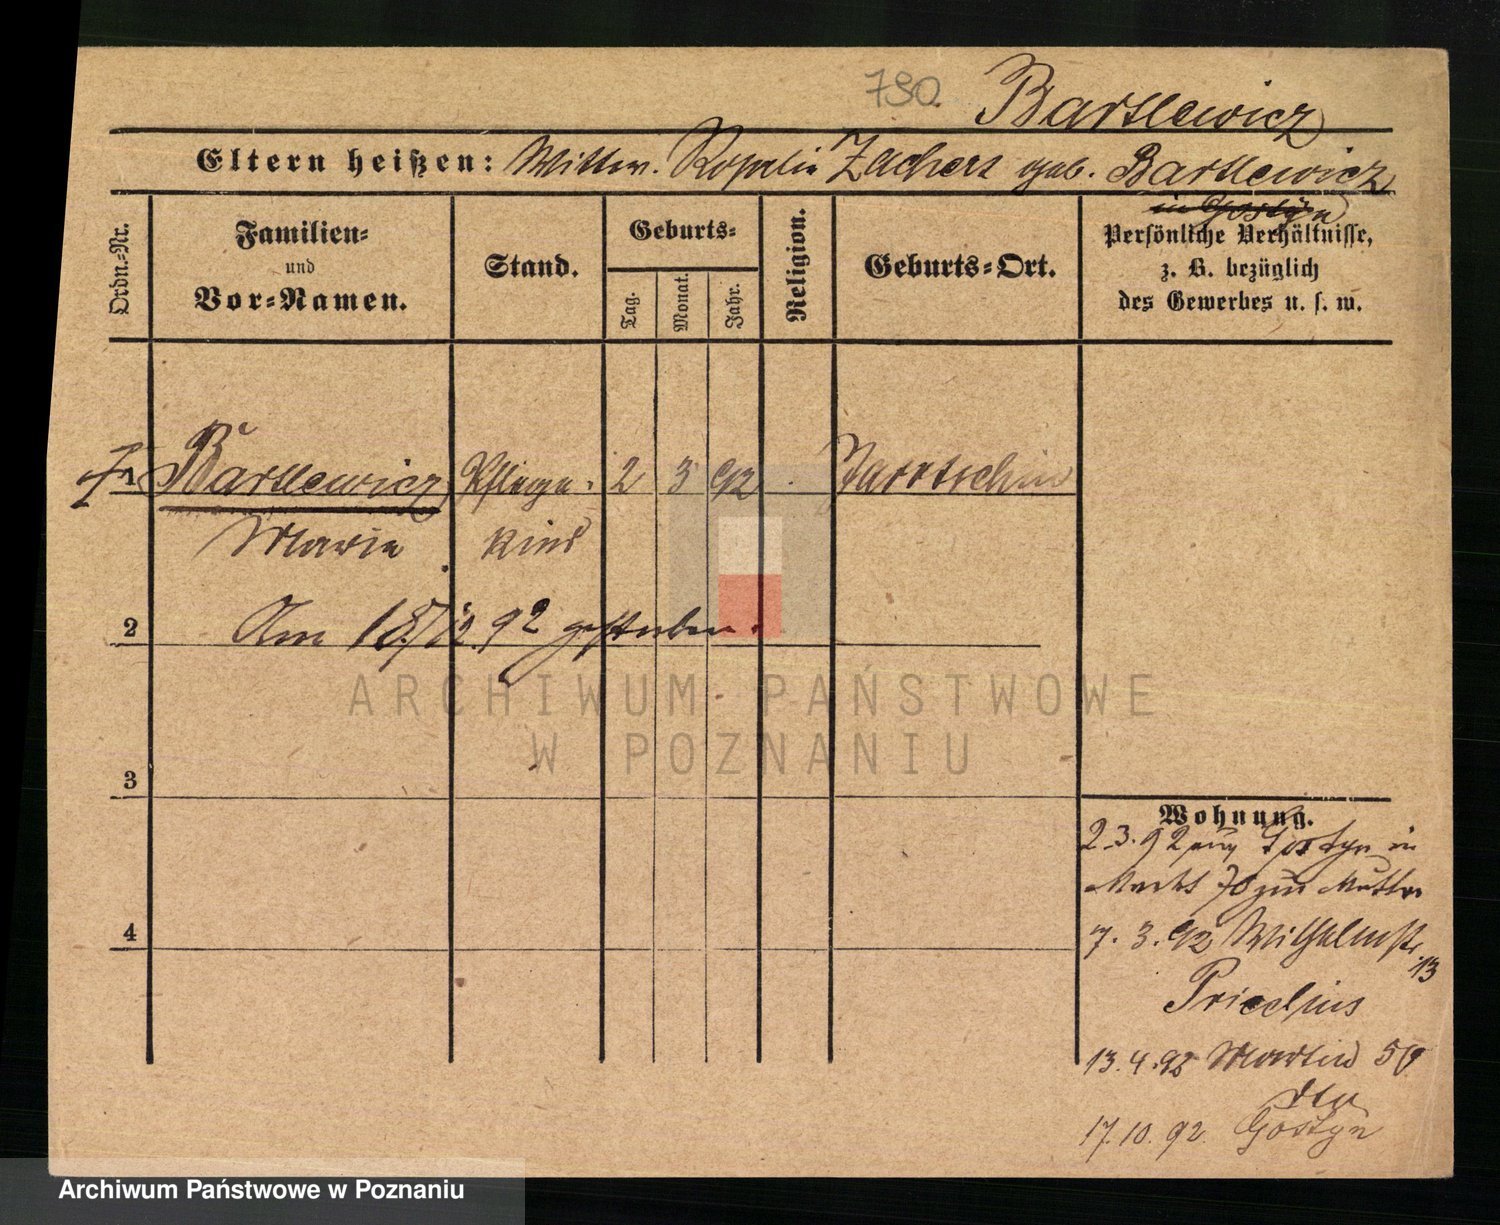 790. Bartlewicz
Eltern heißen: Wittw. Rosalie Zachert geb. Bartlewicz
in Gostyn
Ordn.-Nr.
Familien- und Vor-Namen.
Stand.
Geburts-
Tag.
Monat.
Jahr.
Religion.
Geburts-Ort.
Persönliche Verhältnisse,
z. B. bezüglich
des Gewerbes u. s. w.
1 Bartlewicz Pflege- 2 3 92 Jarotschin
Marie kind
2 Am 18/12. 92 gestorben.
3
4
Wohnung.
2.3.92 aus Gostyn in
Markt 70 zur Mutter
7. 3. 92 Wilhelmstr. 13
13.4.92 Martin 56
17.10.92 Gostyn
ARCHIWUM PAŃSTWOWE
W POZNANIU
Archiwum Państwowe w Poznaniu